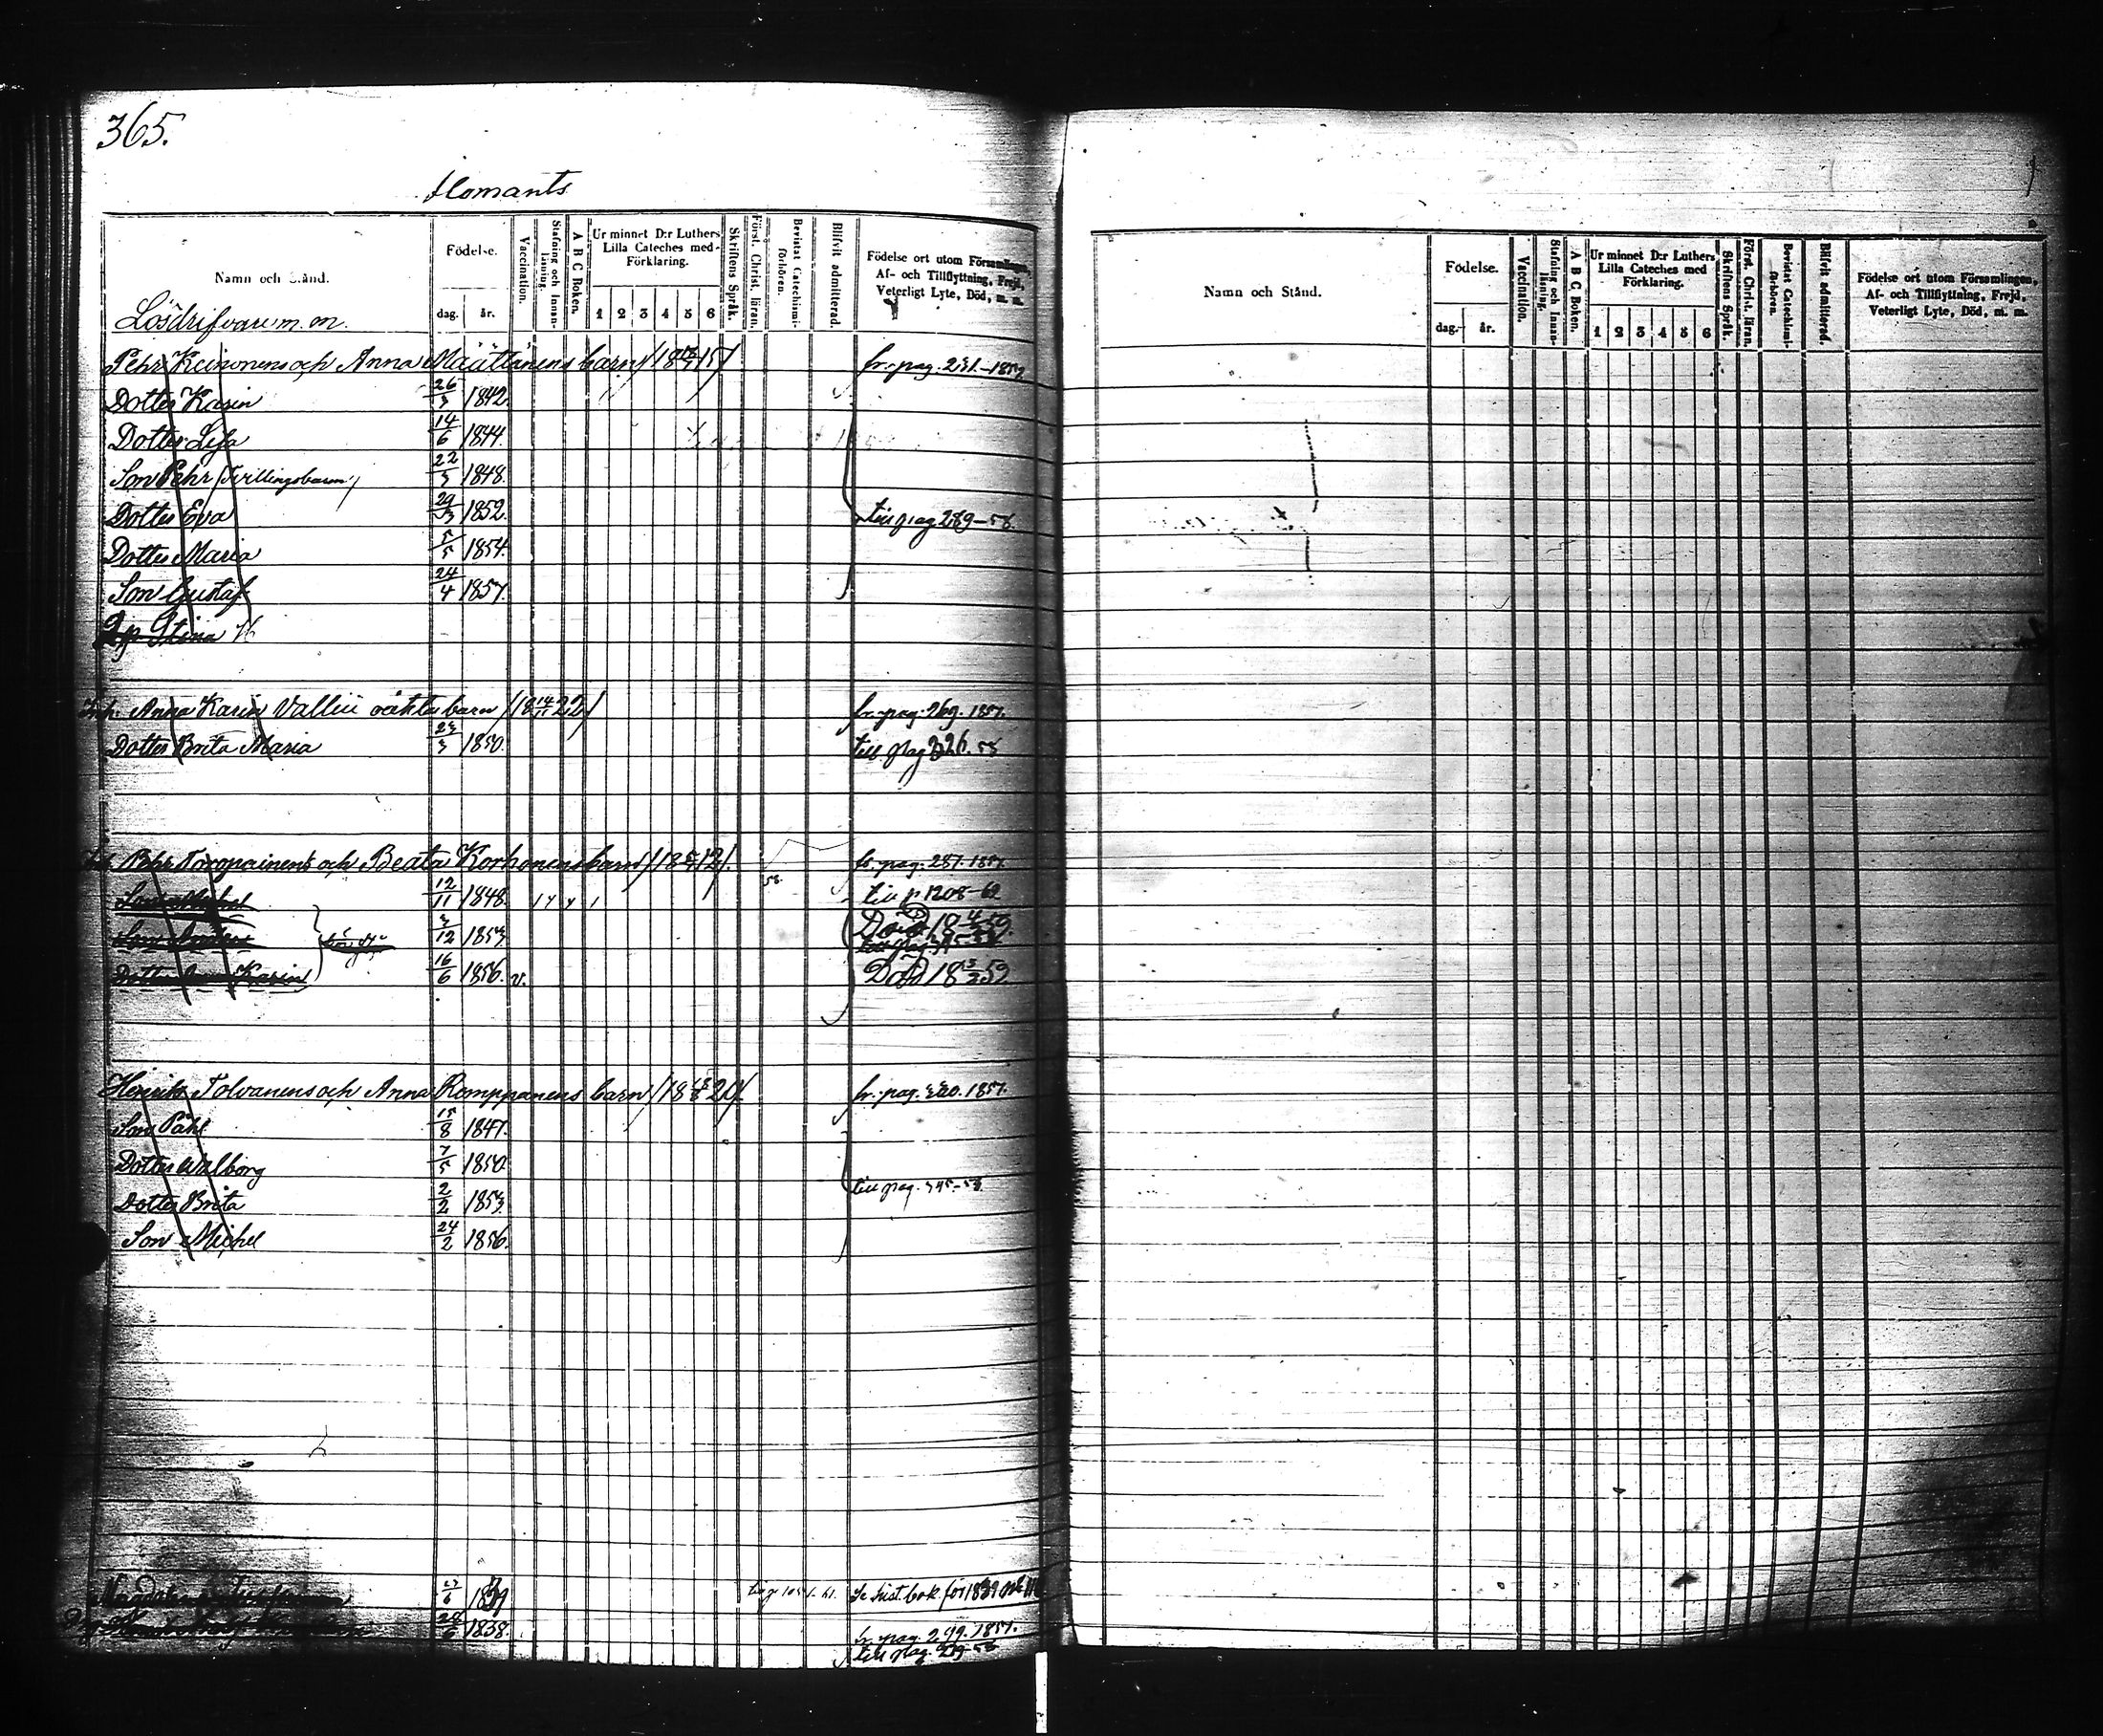 365.
Ilomants
Namn och Stånd.
Födelse.
dag.
år.
Vaccination.
Stafning och Innan-läsning.
A B C Boken.
Ur minnet D:r Luthers Lilla Cateches med Förklaring.
1 2 3 4 5 6
Skriftens Språk.
Först. Christ. läran.
Bevistat Catechimi-förhören.
Blifvit admitterad.
Födelse ort utom Församlingen, Af- och Tillflyttning, Frejd, Veterligt Lyte, Död, m. m.
Lösdrifvare m. m.
Pehr Keinonens och Anna Määttänens barn fr. pag. 231.-1857
Dotter Karin 26/3 1842.
Dotter Lisa 14/6 1844.
Son Pehr (Tvillingsbarn) 22/3 1848.
Dotter Eva 29/3 1852. till pag 289-58.
Dotter Maria 5/5 1854.
Son Gustaf 24/4 1857.
Stina
Anna Karin Vallii oäkta barn /18 14/11 22/ fr. pag. 269. 1857.
Dotter Brita Maria 23/3 1850. till pag 326. 58
Pehr Toropainens och Beata Korhonens barn fr. pag. 287. 1857.
Son Michel 12/11 1848. till p 1208-62
Son Anders 3/12 1853. Död 18 4/3 59.
Dotter Karin 16/6 1856. v. Död 18 3/3 59.
Henrik Tolvanens och Anna Romppanens barn fr. pag. 320. 1857.
Son Påhl 15/8 1847.
Dotter Walborg 7/5 1850.
Dotter Brita 2/2 1853. till pag. 345-58
Son Michel 24/2 1856.
Se hist. bok för 1859
28/6 1838. fr. pag. 299. 1857.
till pag. 219-58
Namn och Stånd.
Födelse.
dag.
år.
Vaccination.
Stafning och Innan-läsning.
A B C Boken.
Ur minnet D:r Luthers Lilla Cateches med Förklaring.
1 2 3 4 5 6
Skriftens Språk.
Först. Christ. läran.
Bevistat Catechimi-förhören.
Blifvit admitterad.
Födelse ort utom Församlingen, Af- och Tillflyttning, Frejd, Veterligt Lyte, Död, m. m.